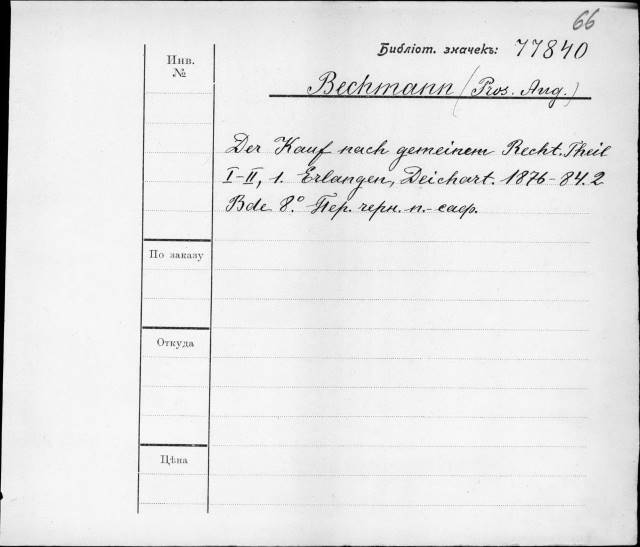 66
Библіот. значекъ: 77840
Инв.
№
Bechmann (Pros. Aug.)
Der Kauf nach gemeinem Recht. Theil
I-II, 1. Erlangen, Deichart. 1876-84. 2
Bde 8.º Пер. черн. п.-саф.
По заказу
Откуда
Цѣна